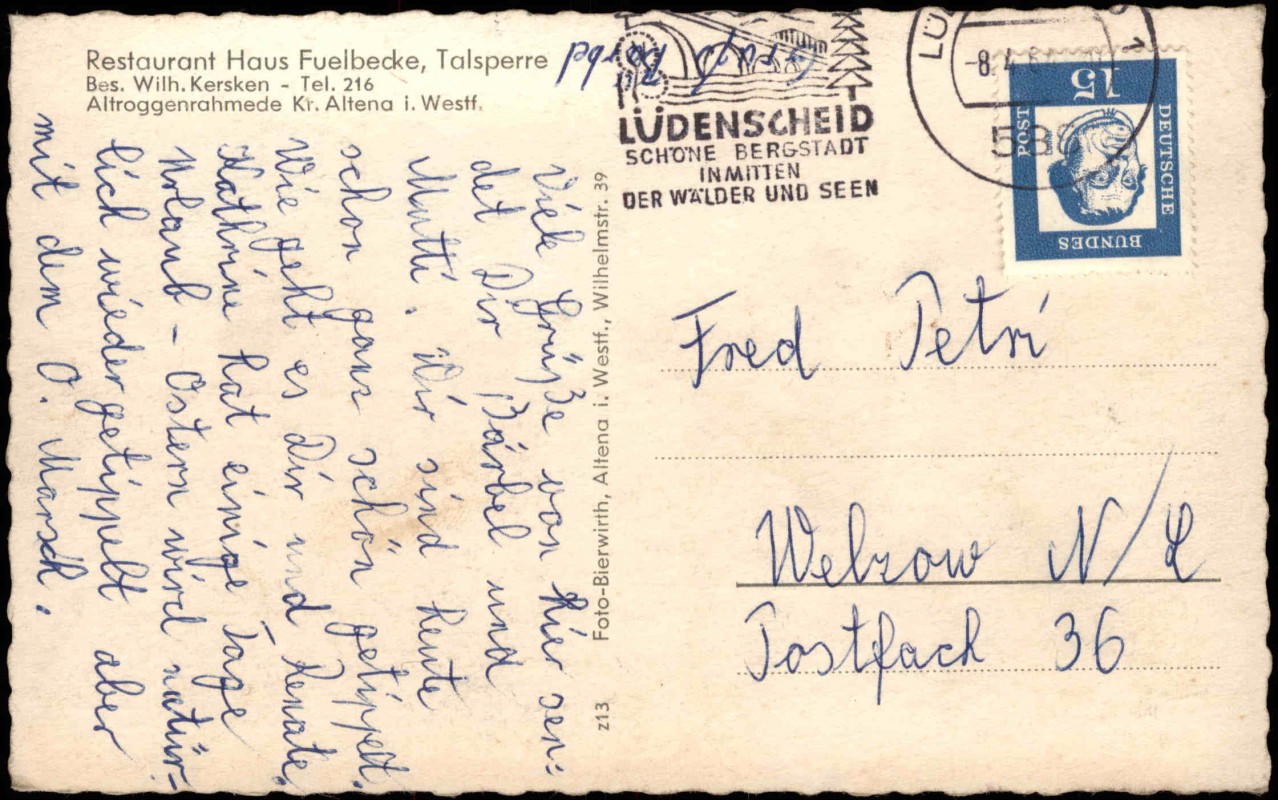 Restaurant Haus Fuelbecke, Talsperre
Bes. Wilh. Kersken - Tel. 216
Altroggenrahmede Kr. Altena i. Westf.
Viele Grüße von hier sen-
det Dir Bärbel und
Mutti. Wir sind heute
schon ganz schön getippelt.
Wie geht es Dir und Renate.
Kathrine hat einige Tage
Urlaub - Ostern wird natür-
lich wieder getippelt aber
mit dem O. Marsch.
Gruß Bärbel
z13 Foto-Bierwirth, Altena i. Westf., Wilhelmstr. 39
LÜDENSCHEID
SCHÖNE BERGSTADT
INMITTEN
DER WÄLDER UND SEEN
LÜ
-8.4.64
588
15
DEUTSCHE
BUNDES
POST
Fred Petri
Welzow N/L
Postfach 36